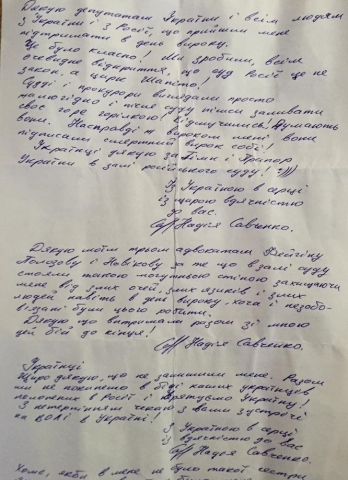 Дякую депутатам України і всім людям
з України і з Росії, що прийшли мене
підтримати в день вироку.
Це було класно! Ми зробили, всім
очевидне відкриття, що суд Росії це не
закон, а цирк Шапіто.
Судді і прокурори виглядали просто
жалюгідно і після суду пішли запивати
своє горе горілкою! Відмучились! Думають
вони. Насправді ж вироком мені вони
підписали смертний вирок собі!
Українці дякую за Гімн і Прапор
України в залі російського суду! :)))
З Україною в серці
із щирою вдячністю
до вас.
Надія Савченко.
Дякую моїм трьом адвокатам Фейгіну
Полозову і Новікову за те що в залі суду
стояли такою могутньою стіною захищаючи
мене від злих очей, злих язиків і злих
людей навіть в день вироку, хоча і незобо-
в'язані були цього робити.
Дякую що витримали разом зі мною
цей бій до кінця!
Надія Савченко.
Українці
Щиро дякую, що не залишили мене. Разом
ми не покинемо в біді наших українців,
полонених в Росії і врятуємо Україну!
З нетерпінням чекаю з вами зустрічі
на волі в Україні!
З Україною в серці
із вдячністю до вас
Надія Савченко.
якби в мене не було такої сестри